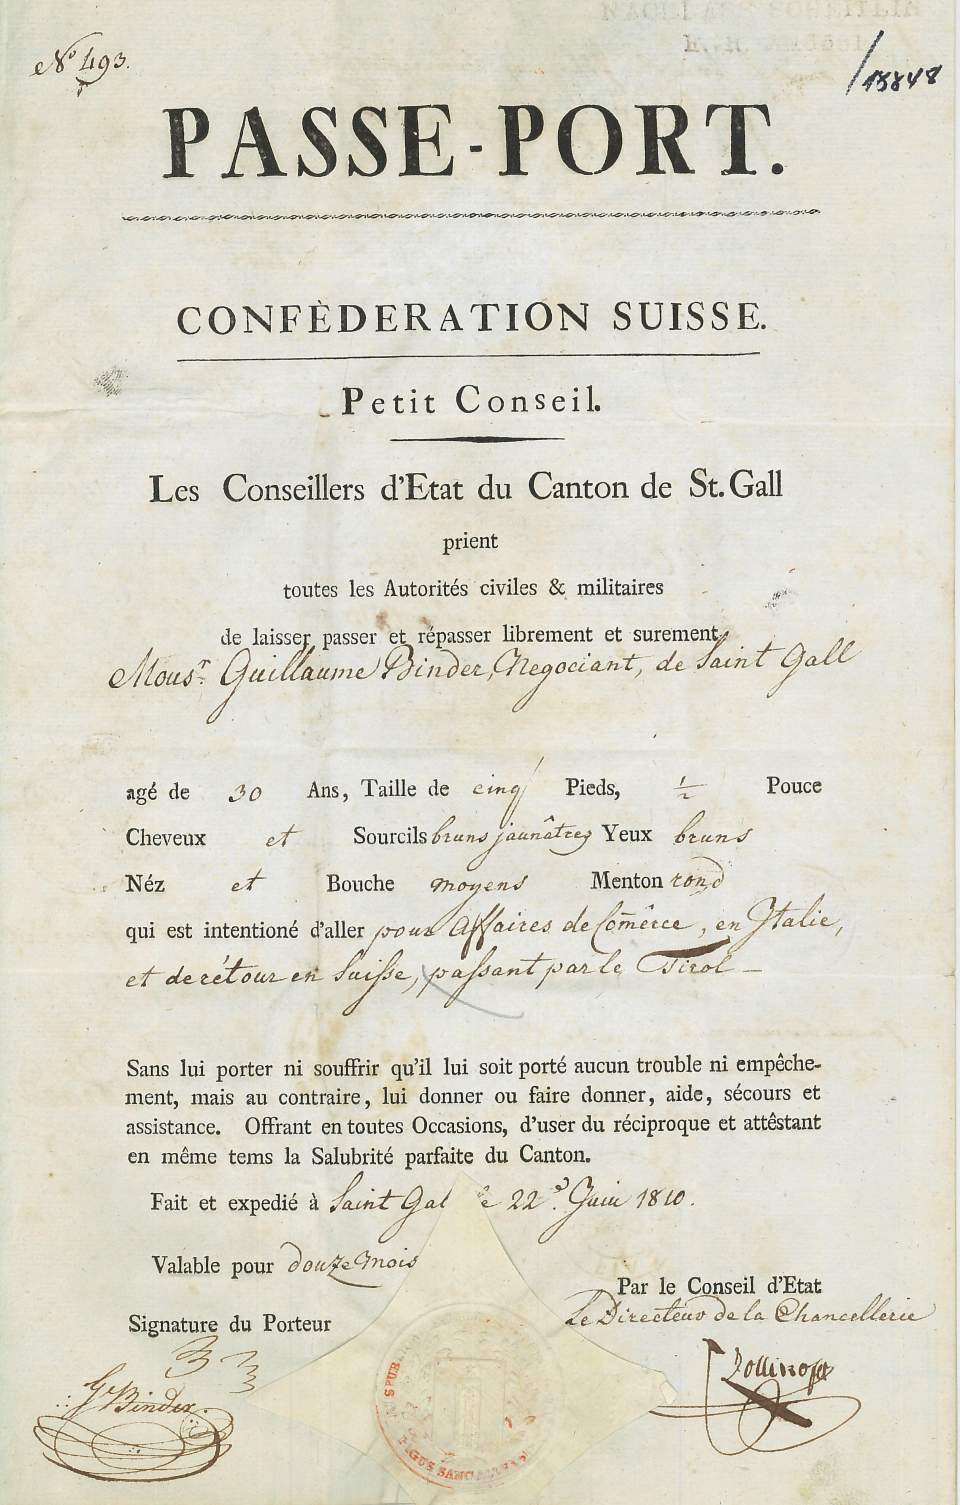 No 493.
/13848
PASSE-PORT.
CONFÈDERATION SUISSE.
Petit Conseil.
Les Conseillers d'Etat du Canton de St. Gall
prient
toutes les Autorités civiles & militaires
de laisser passer et répasser librement et surement
Monsr. Guillaume Binder, Negociant, de Saint Gall
agé de 30 Ans, Taille de cinq Pieds, ½ Pouce
Cheveux et Sourcils bruns jaunâtres Yeux bruns
Néz et Bouche moyens Menton rond
qui est intentioné d'aller pour affaires de Com̄erce, en Italie,
et de rétour en Suisse, passant par le Tirol —
Sans lui porter ni souffrir qu'il lui soit porté aucun trouble ni empêche-
ment, mais au contraire, lui donner ou faire donner, aide, sécours et
assistance. Offrant en toutes Occasions, d'user du réciproque et attêstant
en même tems la Salubrité parfaite du Canton.
Fait et expedié à Saint Gal le 22e. Juin 1810.
Valable pour douze mois
Par le Conseil d'Etat
Le Directeur de la Chancellerie
Signature du Porteur
Gme Binder.